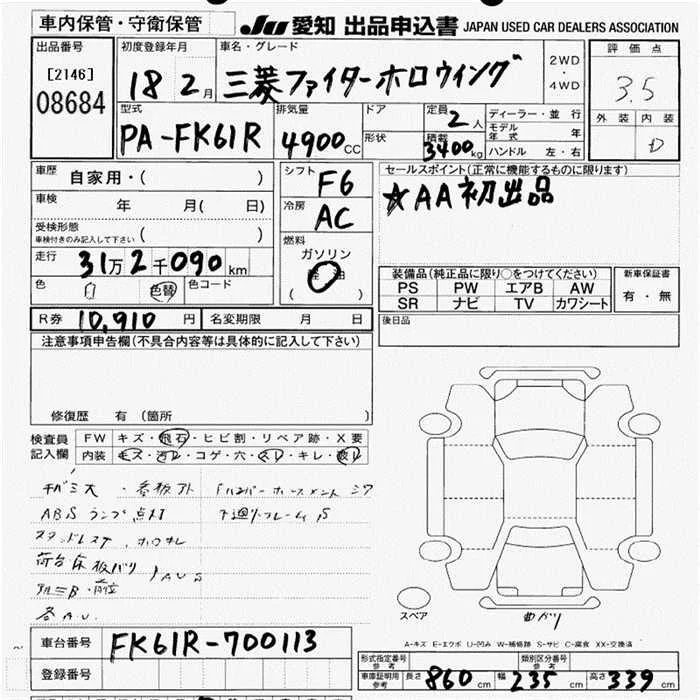 車内保管・守衛保管
JU 愛知 出品申込書 JAPAN USED CAR DEALERS ASSOCIATION
出品番号
[2146]
08684
初度登録年月
18 2月
車名・グレード
三菱ファイターホロウィング
2WD
・
4WD
評価点
3.5
外装 内装
D
型式
PA-FK61R
排気量
4900CC
ドア
形状
定員
2人
積載
3400kg
ディーラー・並行
モデル年式 年
ハンドル 左・右
車歴 自家用・( )
車検 年 月( 日)
受検形態
車検付きのみ記入して下さい ( )
走行 31万2千090km
色 白 色替 色コード
シフト F6
冷房 AC
燃料
ガソリン
軽油
( )
セールスポイント(正常に機能するものに限ります)
☆AA初出品
装備品(純正品に限り○をつけてください)
PS PW エアB AW
SR ナビ TV カワシート
新車保証書
有・無
R券 10,910円 名変期限 月 日
後日品
注意事項申告欄(不具合内容等は具体的に記入して下さい)
修復歴 有 (箇所 )
検査員
記入欄
FW キズ・飛石・ヒビ割・リペア跡・X要
内装 キズ・汚レ・コゲ・穴・スレ・キレ・破レ
ABSランプ点灯 下廻りフレームS
各AU
スペア
曲がり
A-キズ E-エクボ U-凹み W-補修跡 S-サビ C-腐食 XX-交換済
車台番号 FK61R-700113
登録番号
形式指定番号
参考
類別区分番号
参考
車庫証明用
参考
長さ 860cm 幅 235cm 高さ 339cm